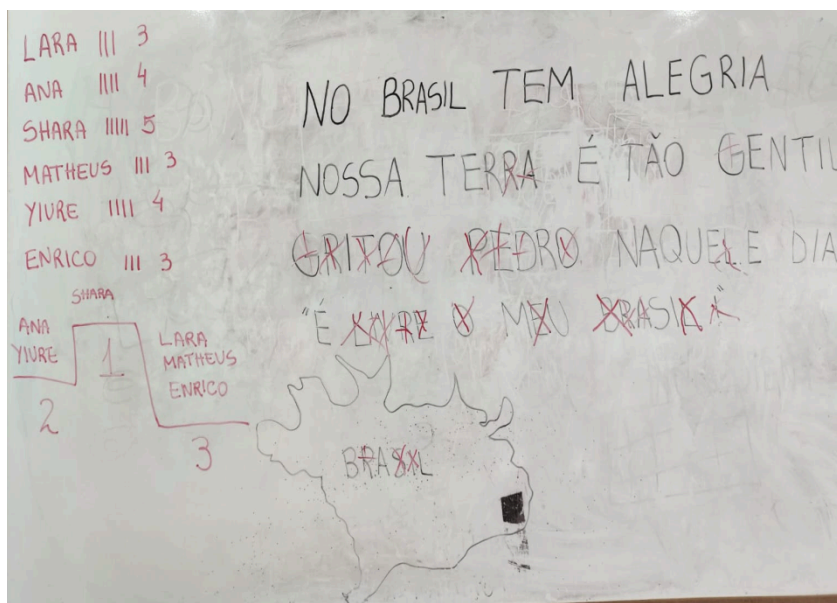 LARA III 3
ANA IIII 4
SHARA IIIII 5
MATHEUS III 3
YIURE IIII 4
ENRICO III 3
SHARA
ANA
YIURE
1
LARA
MATHEUS
ENRICO
2
3
NO BRASIL TEM ALEGRIA
NOSSA TERRA É TÃO GENTIL
GRITOU PEDRO NAQUELE DIA
"É LIVRE O MEU BRASIL"
BRASIL